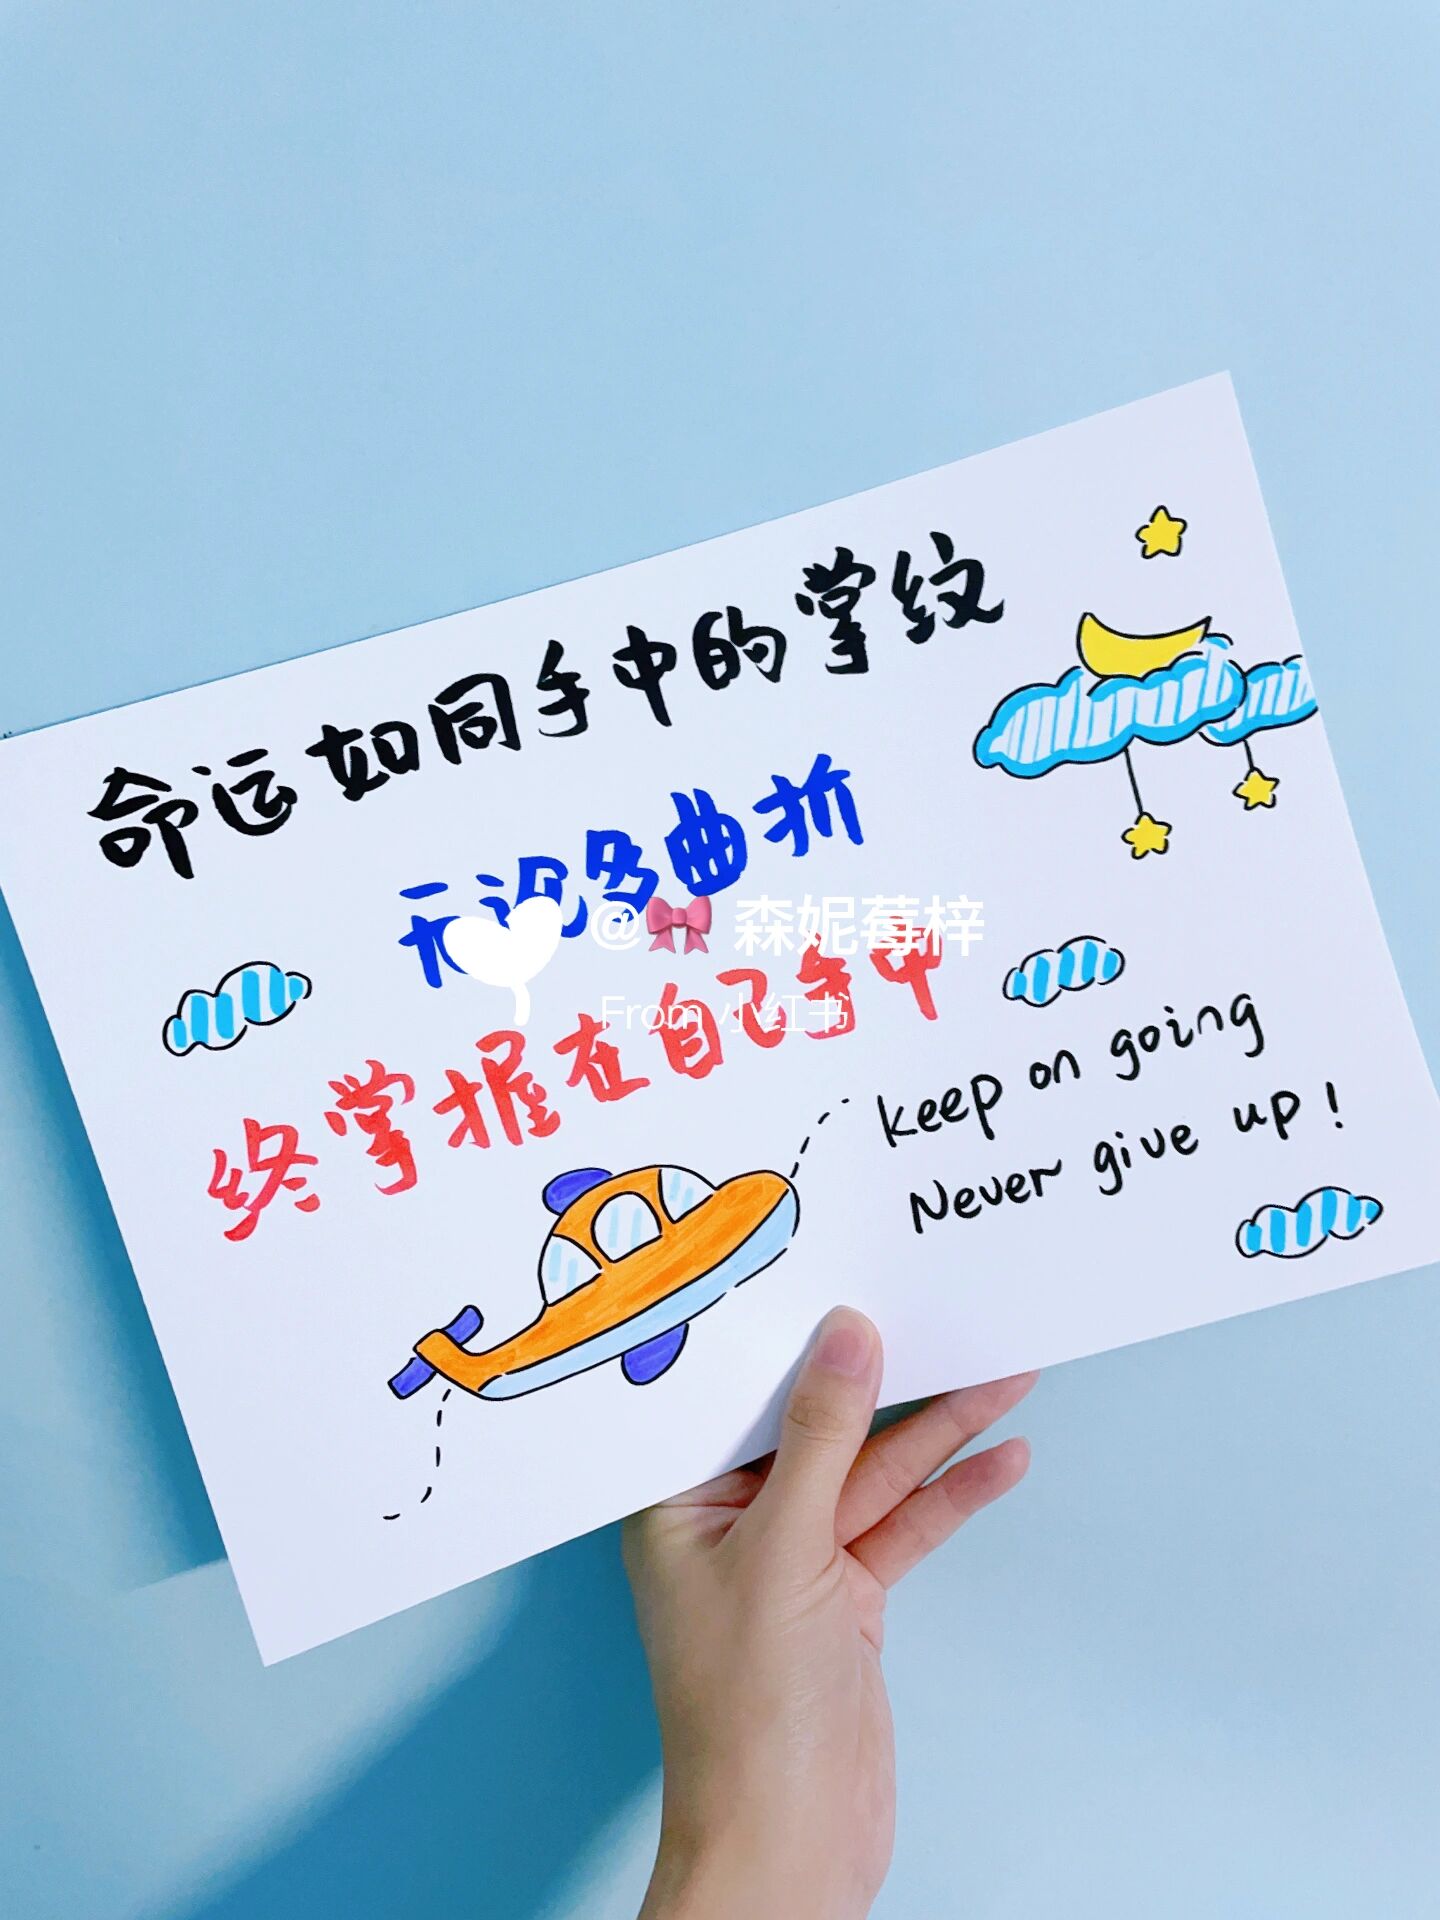 命运如同手中的掌纹
无论多曲折
终掌握在自己手中
@🎀 森妮莓梓
From 小红书
keep on going
Never give up!